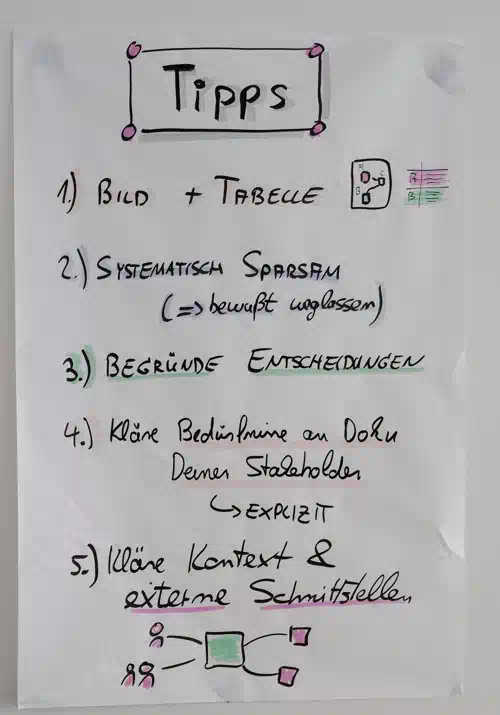 Tipps
1.) BILD + TABELLE
A C B A B
2.) SYSTEMATISCH SPARSAM
(=> bewußt weglassen)
3.) BEGRÜNDE ENTSCHEIDUNGEN
4.) Kläre Bedürfnisse an Doku
Deiner Stakeholder
↳ EXPLIZIT
5.) Kläre Kontext &
externe Schnittstellen